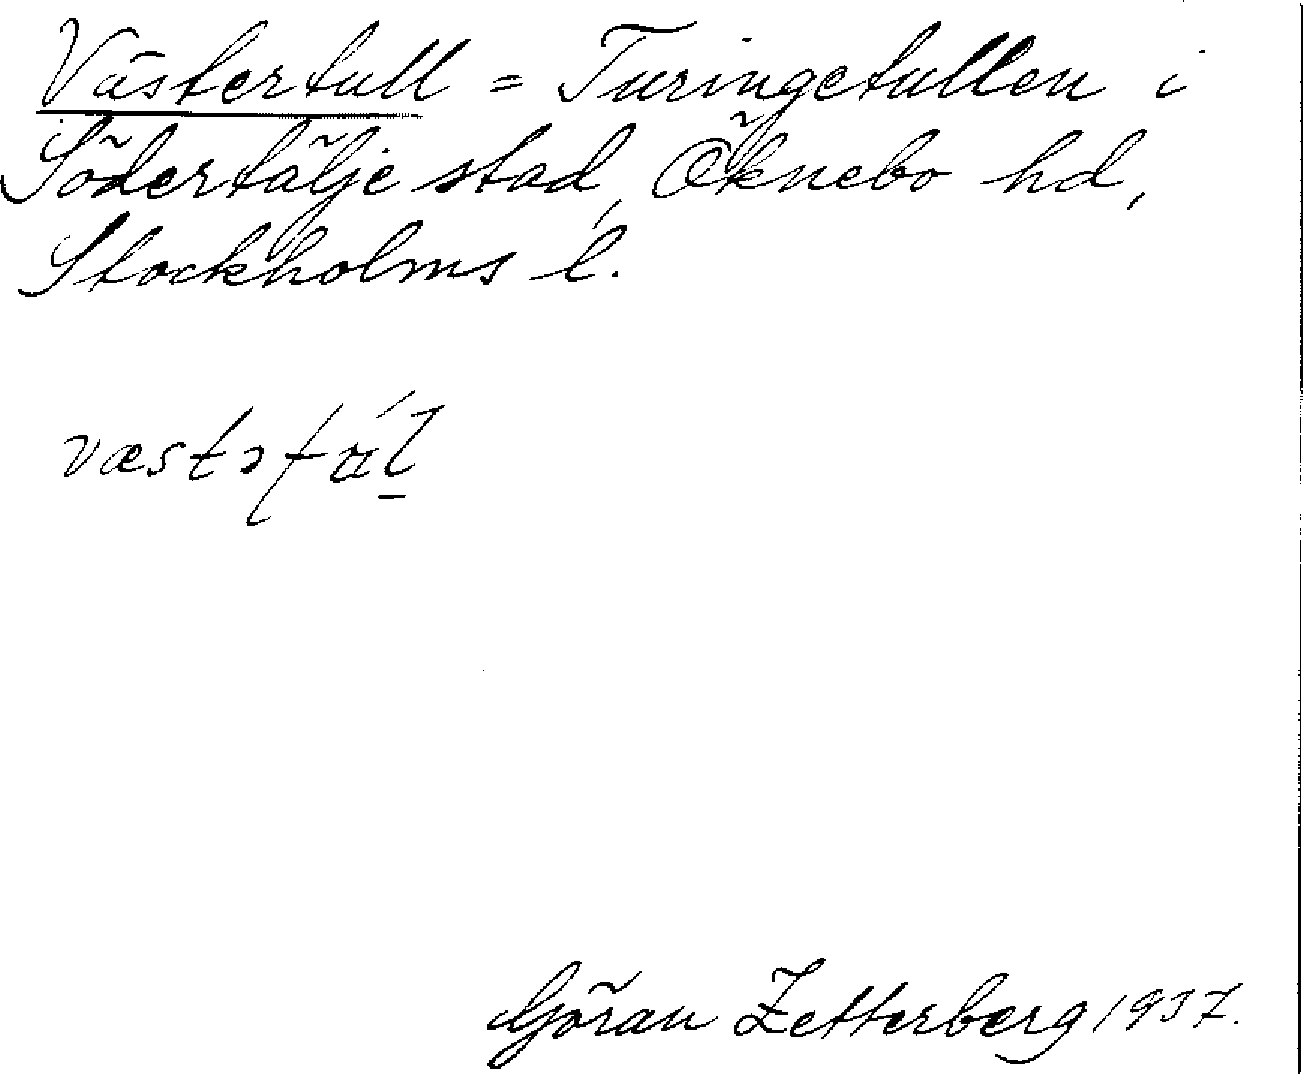 Västertull = Turingetullen i
Södertälje stad, Öknebo hd,
Stockholms l.
Göran Zetterberg 1937.